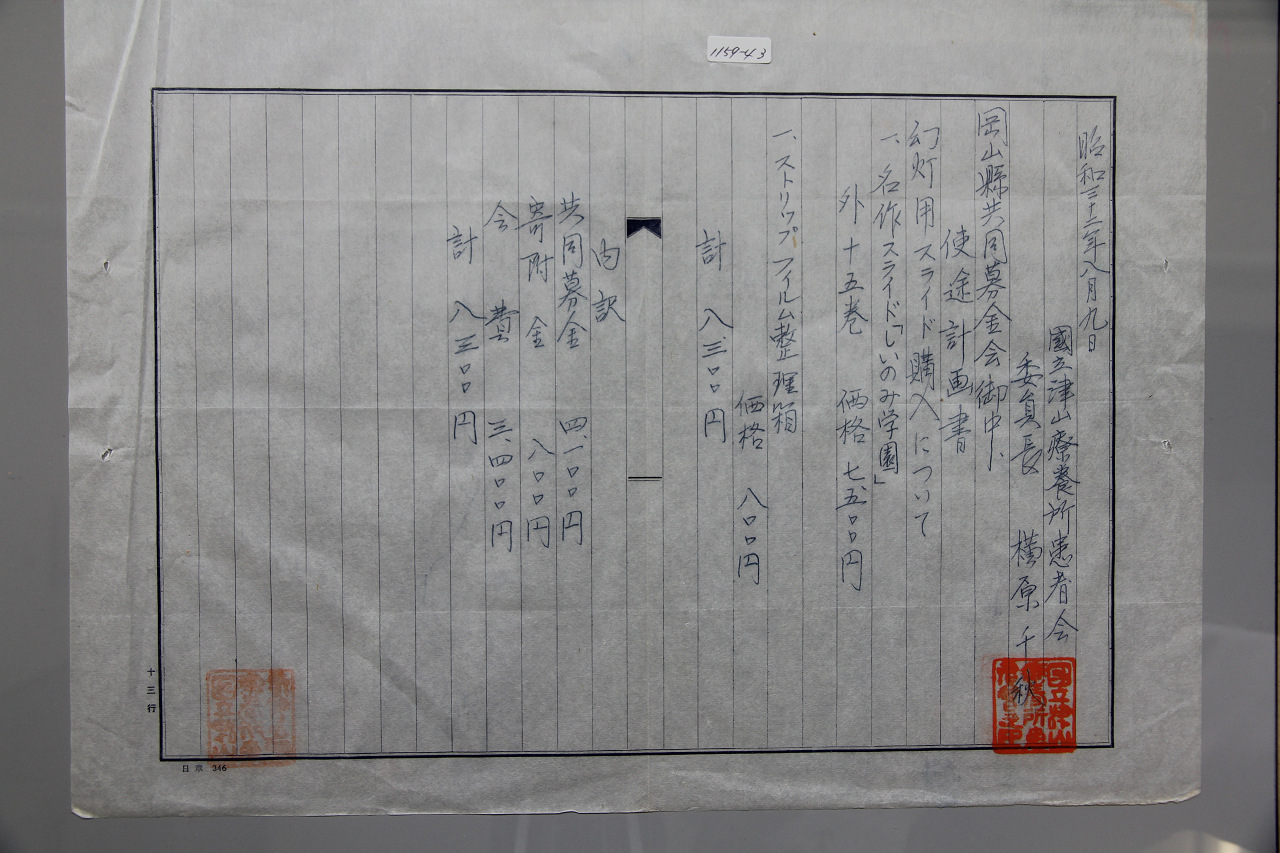 1159-43
昭和三十二年八月九日
國立津山療養所患者会
委員長 横原千秋
岡山縣共同募金会御中、
使途計画書
幻灯用スライド購入について
一、名作スライド「しいのみ学園」
外十五巻 価格 七、五〇〇円
一、ストリップフイルム整理箱
価格 八〇〇円
計 八、三〇〇円
内訳
共同募金 四、一〇〇円
寄附金 八〇〇円
会費 三、四〇〇円
計 八三〇〇円
十三行
日京 346